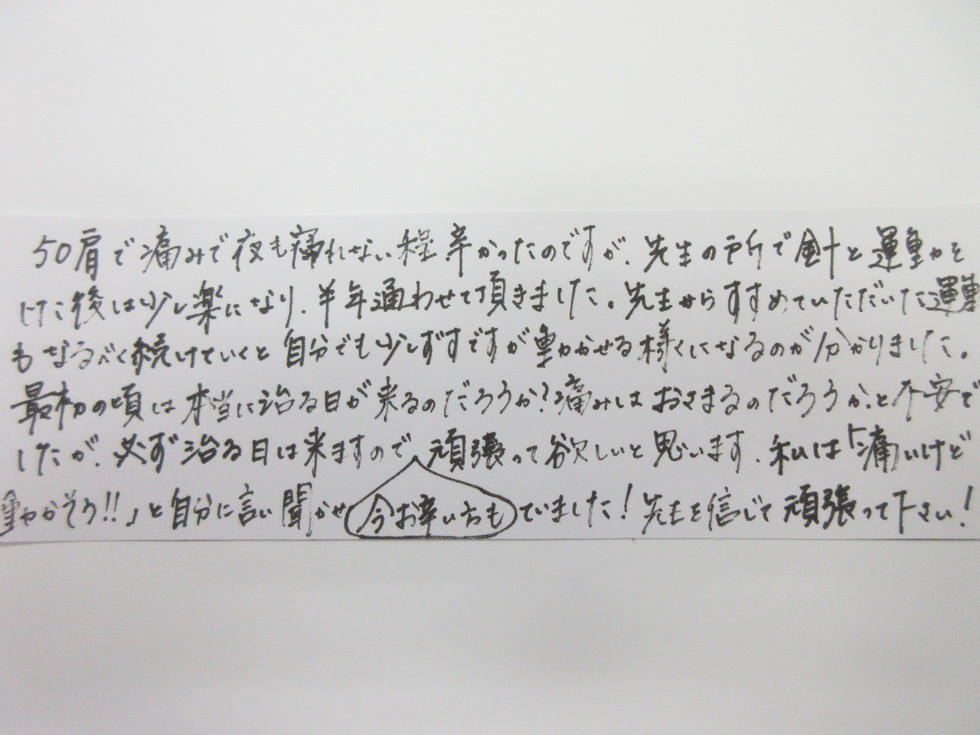 50肩で痛みで夜も寝れない程辛かったのですが、先生の所で針と運動を
した後は少し楽になり、半年通わせて頂きました。先生からすすめていただいた運動
もなるべく続けていくと自分でも少しずつですが動かせる様くになるのが分かりました。
最初の頃は本当に治る日が来るのだろうか?痛みはおさまるのだろうか、と不安で
したが、必ず治る日は来ますので頑張って欲しいと思います。私は「痛いけど
今お辛い方も
動かそう!!」と自分に言い聞かせていました!先生を信じて頑張って下さい!